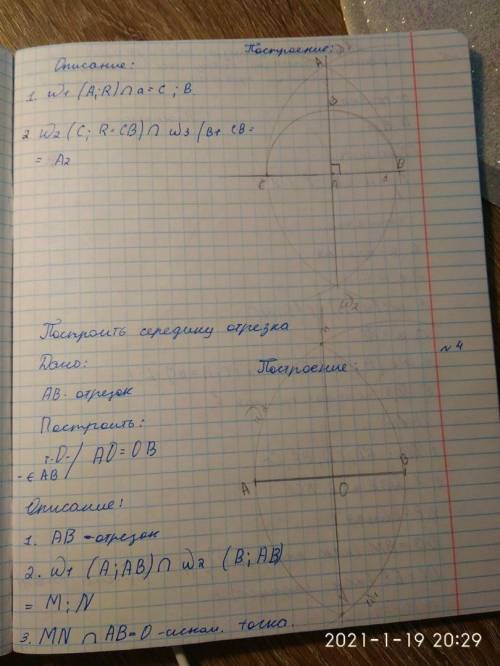 Построение:
Описание:
1. W1 (A; R) ∩ a = C ; B.
2. W2 (C; R=CB) ∩ W3 (B; CB =
= A2
A
B
C
B
W2
Построить середину отрезка
Дано:
№4
Построение:
AB - отрезок
Построить:
т. O - / AO = OB
- ∈ AB
A
B
O
Описание:
1. AB - отрезок
2. W1 (A; AB) ∩ W2 (B; AB)
= M; N
3. MN ∩ AB = O - иском. точка.
2021-1-19 20:29